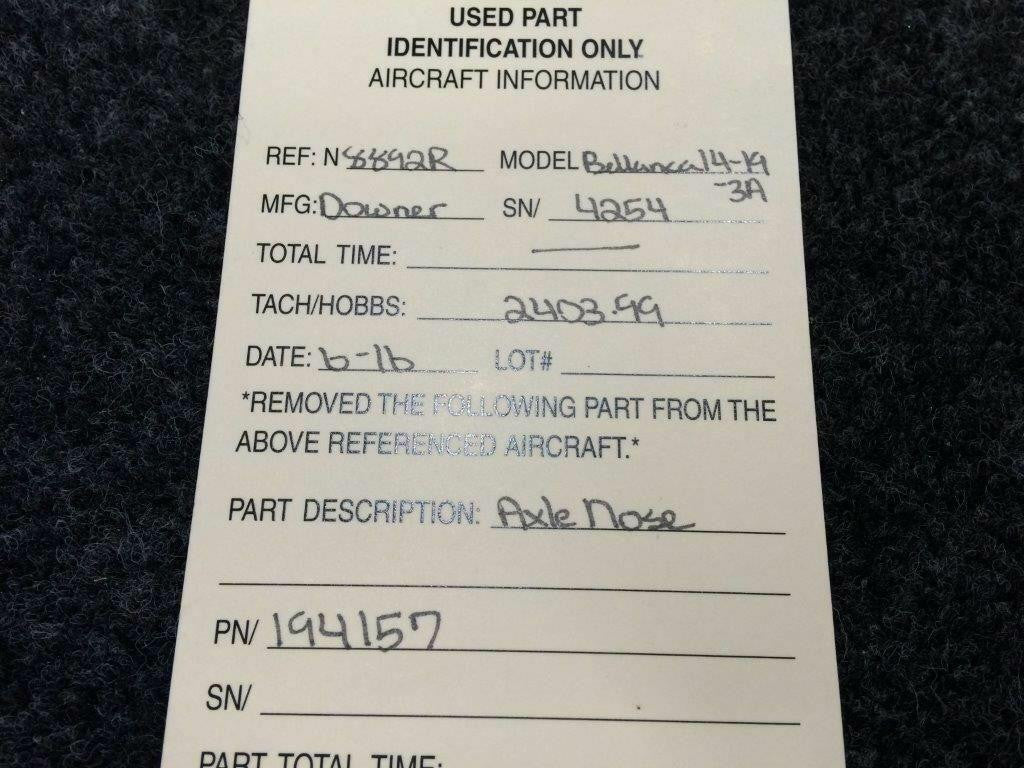 USED PART
IDENTIFICATION ONLY
AIRCRAFT INFORMATION
REF: N8892R MODEL Bellanca 14-19
-3A
MFG: Downer SN/ 4254
TOTAL TIME: —
TACH/HOBBS: 2403.99
DATE: 6-16 LOT#
*REMOVED THE FOLLOWING PART FROM THE
ABOVE REFERENCED AIRCRAFT.*
PART DESCRIPTION: Axle Nose
PN/ 194157
SN/
PART TOTAL TIME: